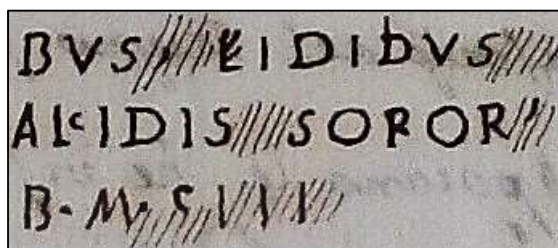 BVS EIDIBVS
ALCIDIS SOROR
B. M. S V V V